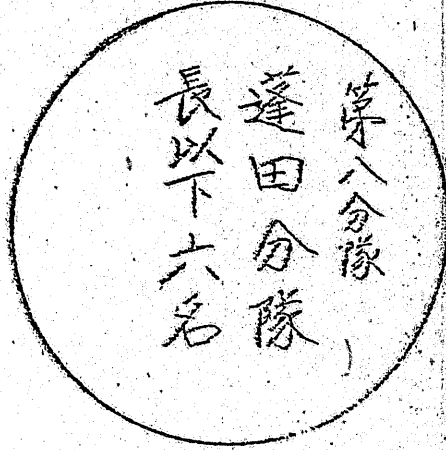 第八分隊
蓬田分隊
長以下六名